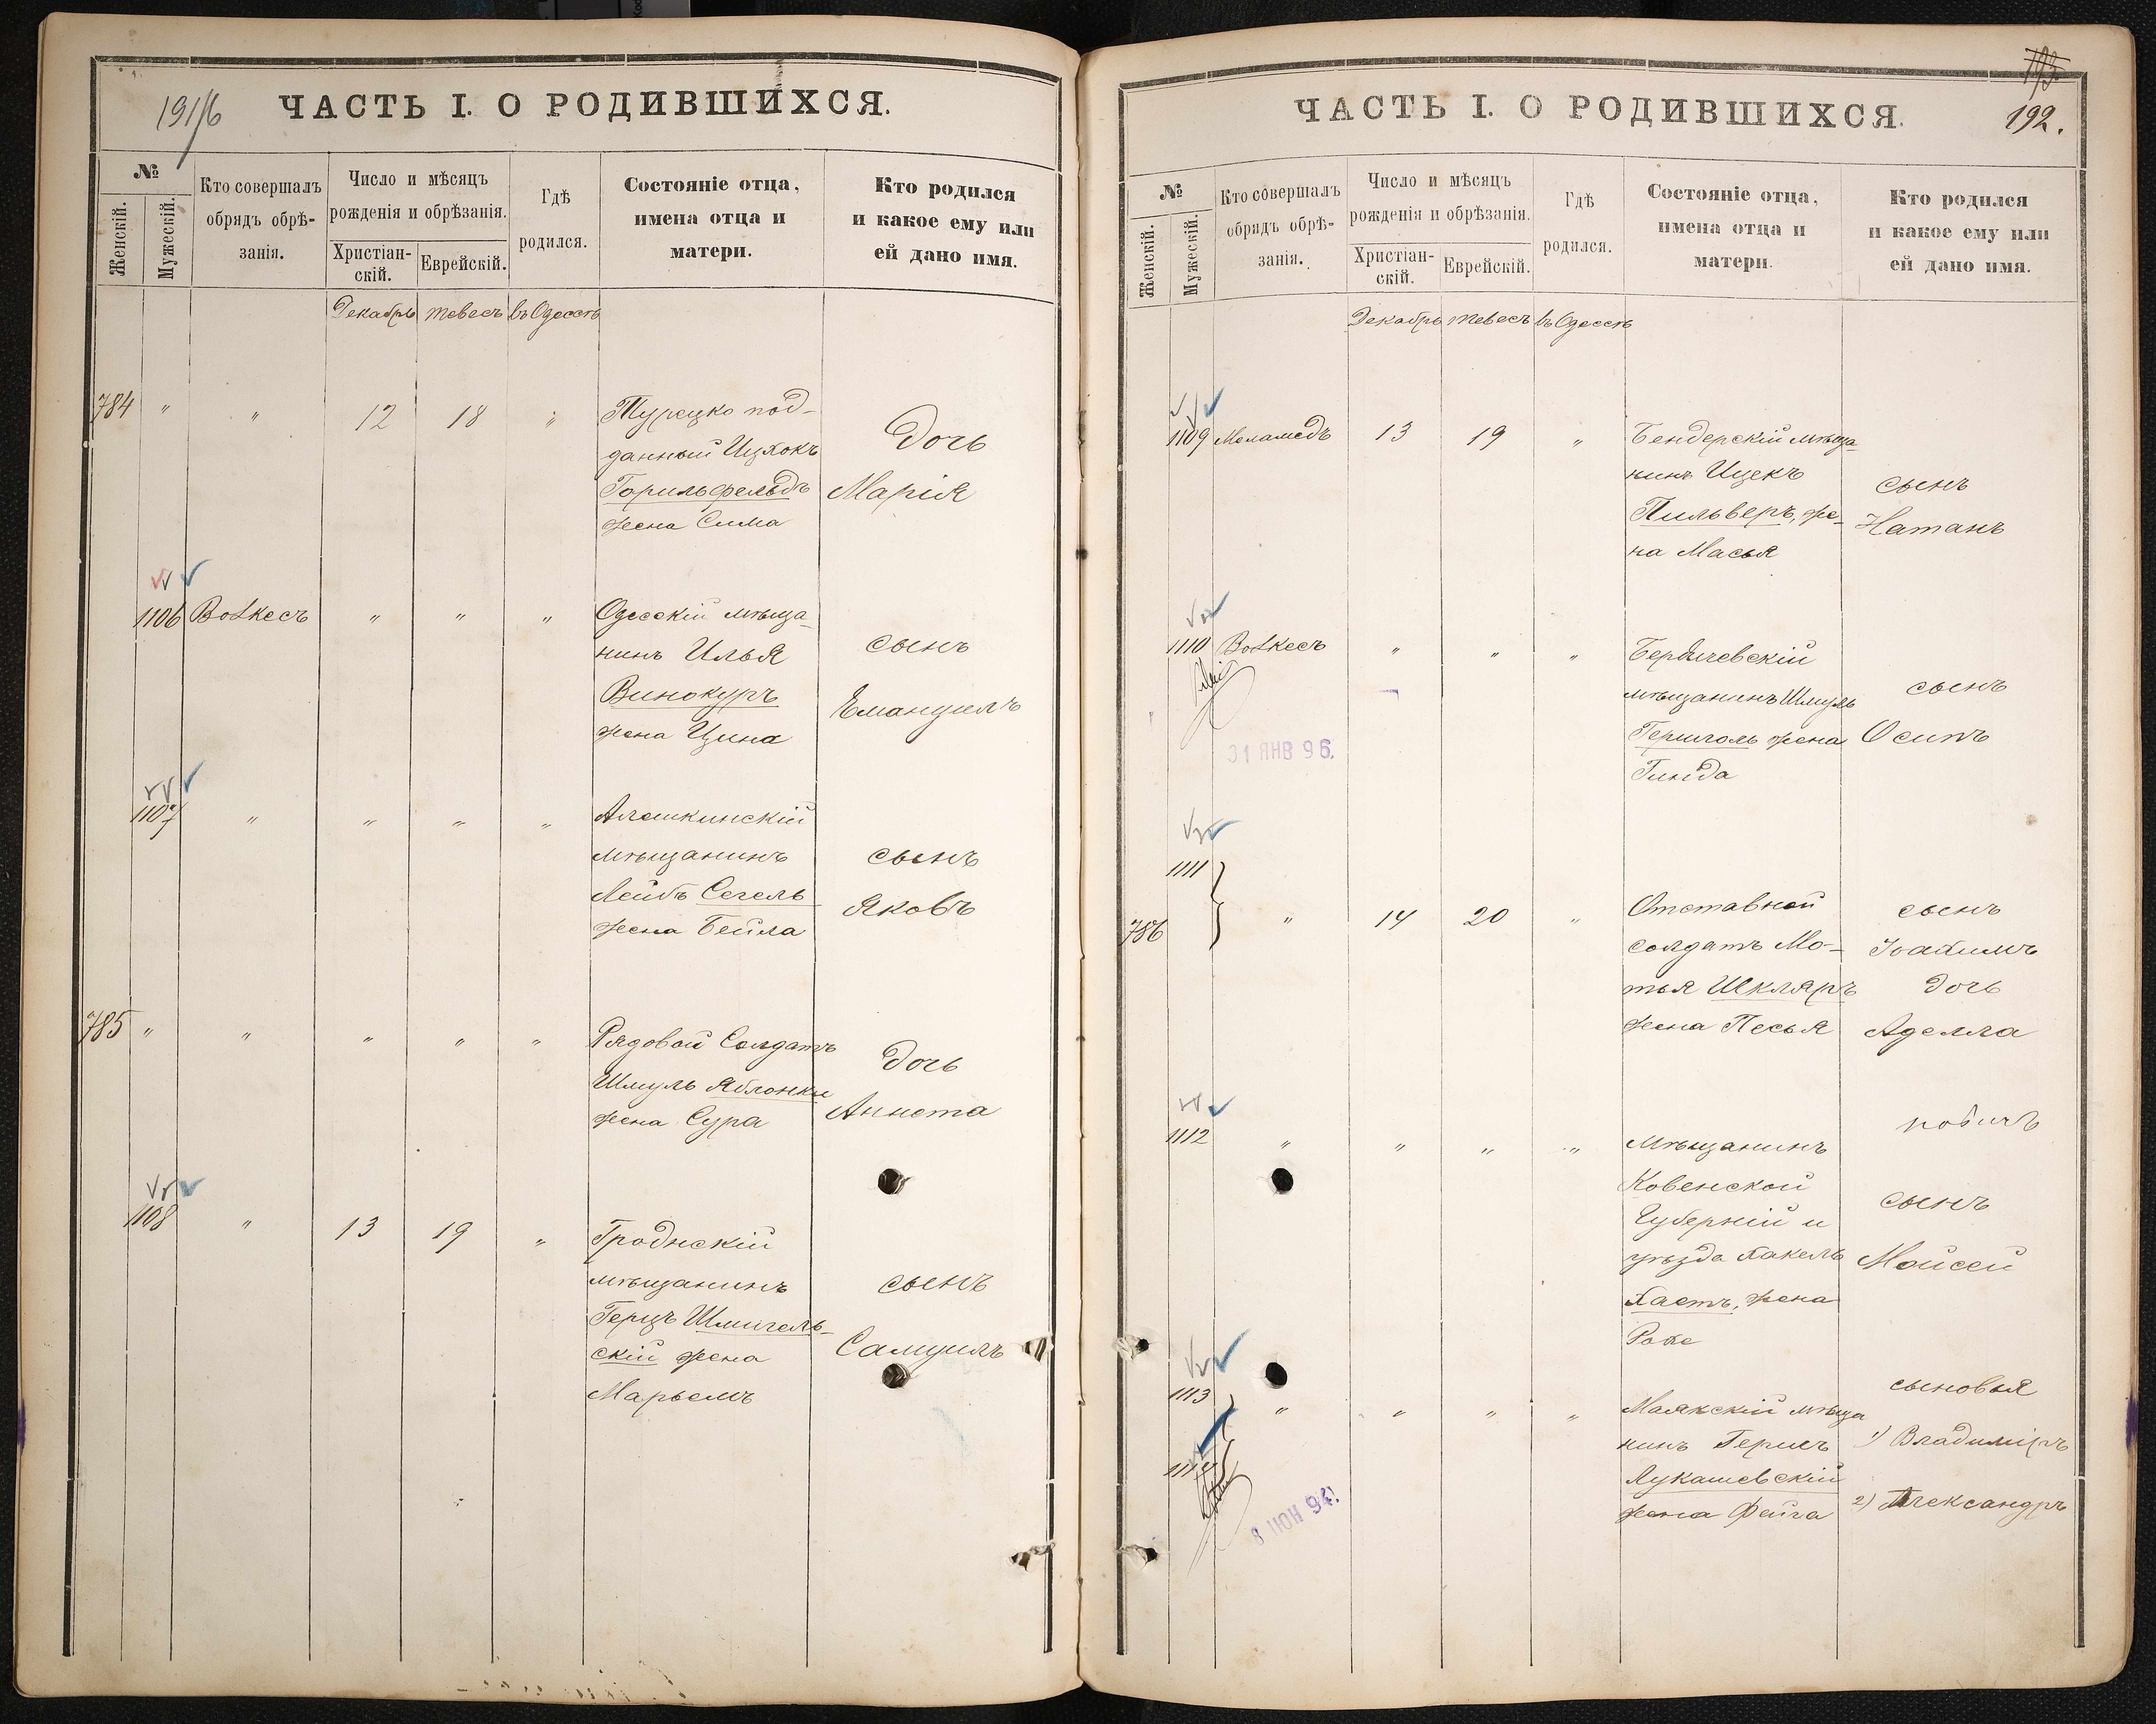 ЧАСТЬ I. О РОДИВШИХСЯ.
№
Женскій.
Мужескій.
Кто совершалъ
обрядъ обрѣ-
занія.
Число и мѣсяцъ
рожденія и обрѣзанія.
Христіан-
скій.
Еврейскій.
Гдѣ
родился.
Состояніе отца,
имена отца и
матери.
Кто родился
и какое ему или
ей дано имя.
Декабрь Тевесъ въ Одессѣ
784 " " 12 18 "
Турецко под-
данный Ицхокъ
Горильфельдъ
жена Сима
Дочь
Марія
1106 Волкесъ " " "
Одесскій мѣща-
нинъ Илья
Винокуръ
жена Цина
сынъ
Емануилъ
1107 " " " "
Алешкинскій
мѣщанинъ
Лейбъ Сегель
жена Бейла
сынъ
Яковъ
785 " " " " "
Рядовой Солдатъ
Шмуль Яблонки
жена Сура
Дочь
Аннета
1108 " 13 19 "
Гроднскій
мѣщанинъ
Герцъ Шмигель-
скій жена
Марьемъ
сынъ
Самуилъ
ЧАСТЬ I. О РОДИВШИХСЯ.
192.
№
Женскій.
Мужескій.
Кто совершалъ
обрядъ обрѣ-
занія.
Число и мѣсяцъ
рожденія и обрѣзанія.
Христіан-
скій.
Еврейскій.
Гдѣ
родился.
Состояніе отца,
имена отца и
матери.
Кто родился
и какое ему или
ей дано имя.
Декабрь Тевесъ въ Одессѣ
1109 Меламедъ 13 19 "
Бендерскій мѣща-
нинъ Ицекъ
Пильверъ, же-
на Масья
сынъ
Натанъ
1110 Волкесъ " " "
31 ЯНВ 96.
Бердичевскій
мѣщанинъ Шмуль
Гершголь жена
Гинда
сынъ
Осипъ
1111
786 " 14 20 "
Отставной
солдатъ Мо-
тья Шкляръ
жена Песья
сынъ
Іоахимъ
дочь
Аделла
1112 " " " "
Мѣщанинъ
Ковенской
Губерній и
уѣзда Хакель
Хастъ, жена
Рохе
сынъ
Мойсей
1113 " " " "
1114
Маякскій мѣща
нинъ Гершъ
Лукашевскій
жена Фейга
сыновья
1) Владиміръ
2) Александръ